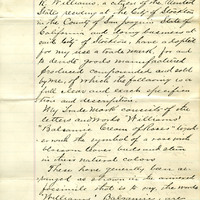 W. Williams, a citizen of the United
States residing at the city of Stockton
in the County of San Joaquin State of
California and doing business at
said city of Stockton, have adopted
for my use a trade mark, for and
to denote goods manufactured
produced compounded and sold
by me, of which the following is a
full clear and exact specifica-
tion and description.
My Trade Mark consists of the
letters and words Williams'
"Balsamic Cream of Roses" togeth-
er with the symbol of a rose and
blossom thereon
in their natural colors
These have generally been ar-
ranged as shown in the annexed
facsimile that is to say, the words
"Williams' Balsamic" are